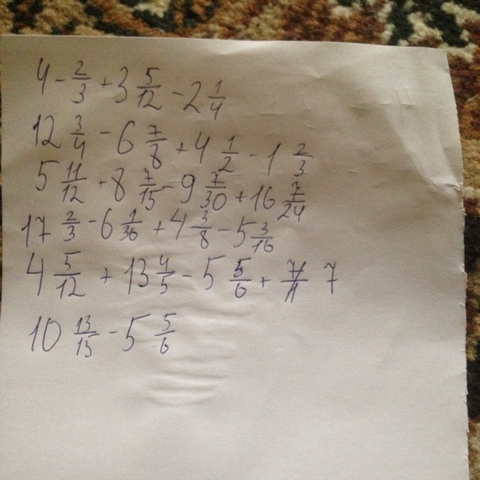 4 - 2/3 + 3 5/12 - 2 1/4
12 3/4 - 6 7/8 + 4 1/2 - 1 2/3
5 11/12 + 8 7/15 - 9 7/30 + 16 7/24
17 2/3 - 6 1/36 + 4 3/8 - 5 3/16
4 5/12 + 13 4/5 - 5 5/6 + 7
10 13/15 - 5 5/6